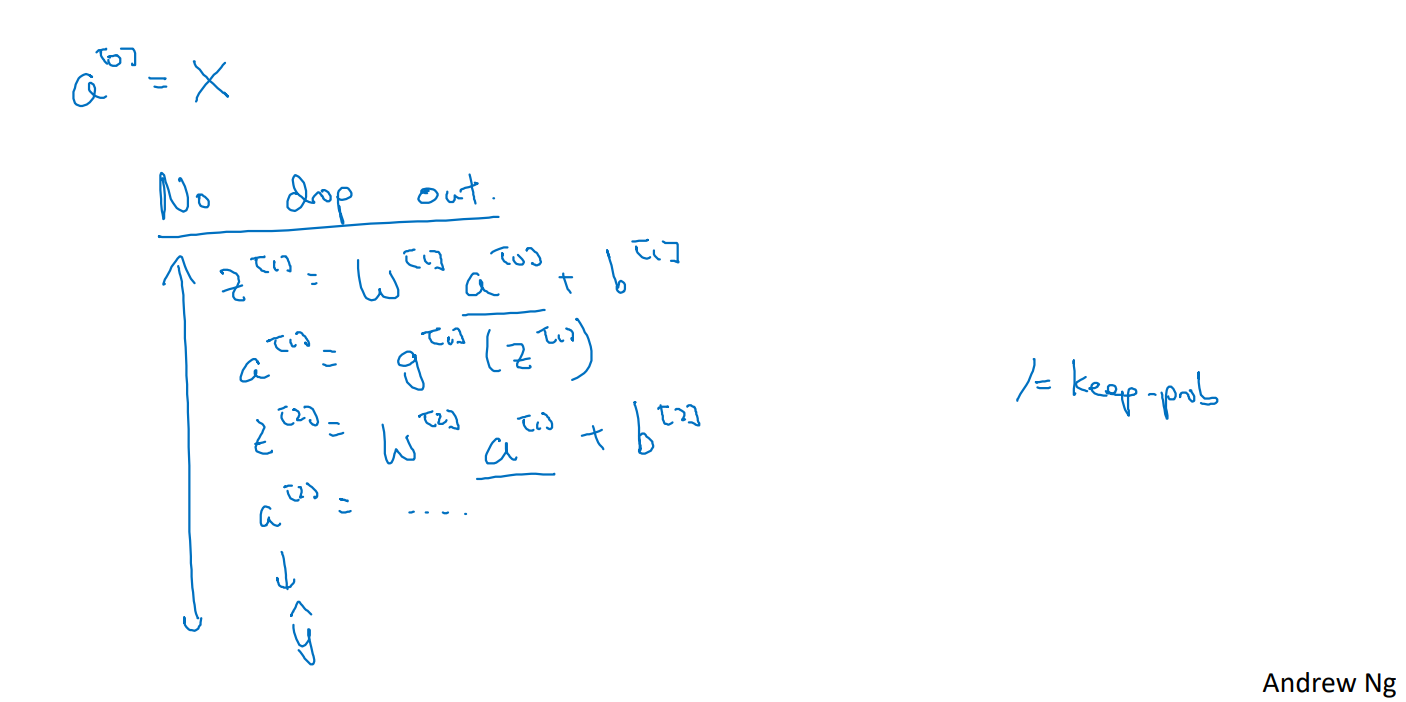 a^[0] = X
No drop out.
z^[1] = W^[1] a^[0] + b^[1]
a^[1] = g^[1] (z^[1])
z^[2] = W^[2] a^[1] + b^[2]
a^[2] = ....
↓
ŷ
/= keep-prob
Andrew Ng